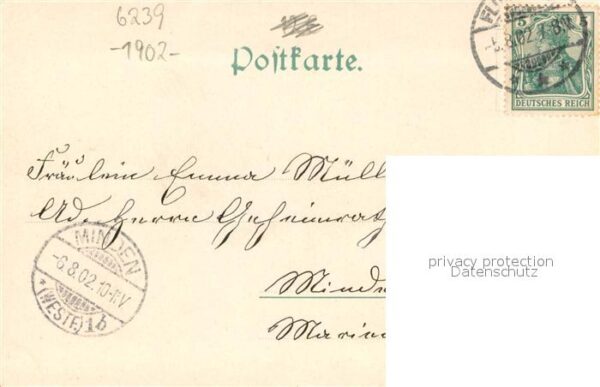 6239
-1902-
Postkarte.
5 5
-5.8.02
DEUTSCHES REICH
Fräulein Emma Müll
Ad. Herrn Geheimrath
Minde
Marien
MINDEN
-6.8.02.10-11V
*(WESTF.)1b
privacy protection
Datenschutz